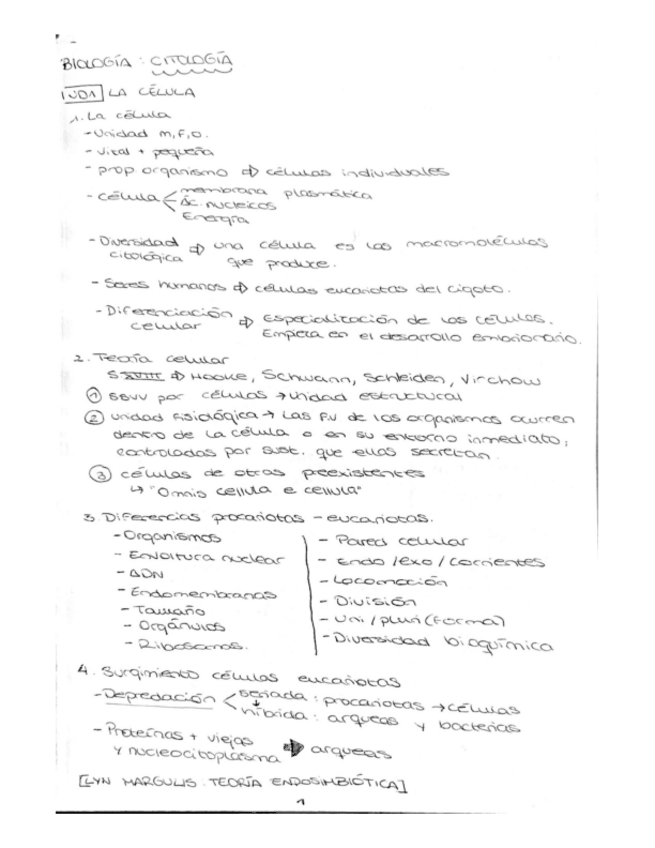 BIOLOGÍA : CITOLOGÍA
UD1 LA CÉLULA
1. La célula
- Unidad m, f, o.
- Vital + pequeña
- prop organismo ⇨ células individuales
- célula < membrana plasmática
Ác. nucleicos
Energía
- Diversidad citológica ⇨ una célula es las macromoléculas
que produce.
- Seres humanos ⇨ células eucariotas del cigoto.
- Diferenciación celular ⇨ Especialización de las células.
Empieza en el desarrollo embrionario.
2. Teoría celular
S XVIII ⇨ Hooke, Schwann, Schleiden, Virchow
① SSVV por células → unidad estructural
② unidad fisiológica → Las FV de los organismos ocurren
dentro de la célula o en su entorno inmediato,
controladas por sust. que ellas secretan.
③ células de otras preexistentes
↳ "Omnis cellula e cellula"
3. Diferencias procariotas - eucariotas.
- Organismos
- Envoltura nuclear
- ADN
- Endomembranas
- Tamaño
- Orgánulos
- Ribosomas.
- Pared celular
- Endo / exo / corrientes
- Locomoción
- División
- Uni / pluri (Forma)
- Diversidad bioquímica
4. Surgimiento células eucariotas
- Depredación < seriada : procariotas → células
↓
híbrida : arqueas y bacterias
- Proteínas + viejas
y nucleocitoplasma ⇨ arqueas
[LYN MARGULIS : TEORÍA ENDOSIMBIÓTICA]
1